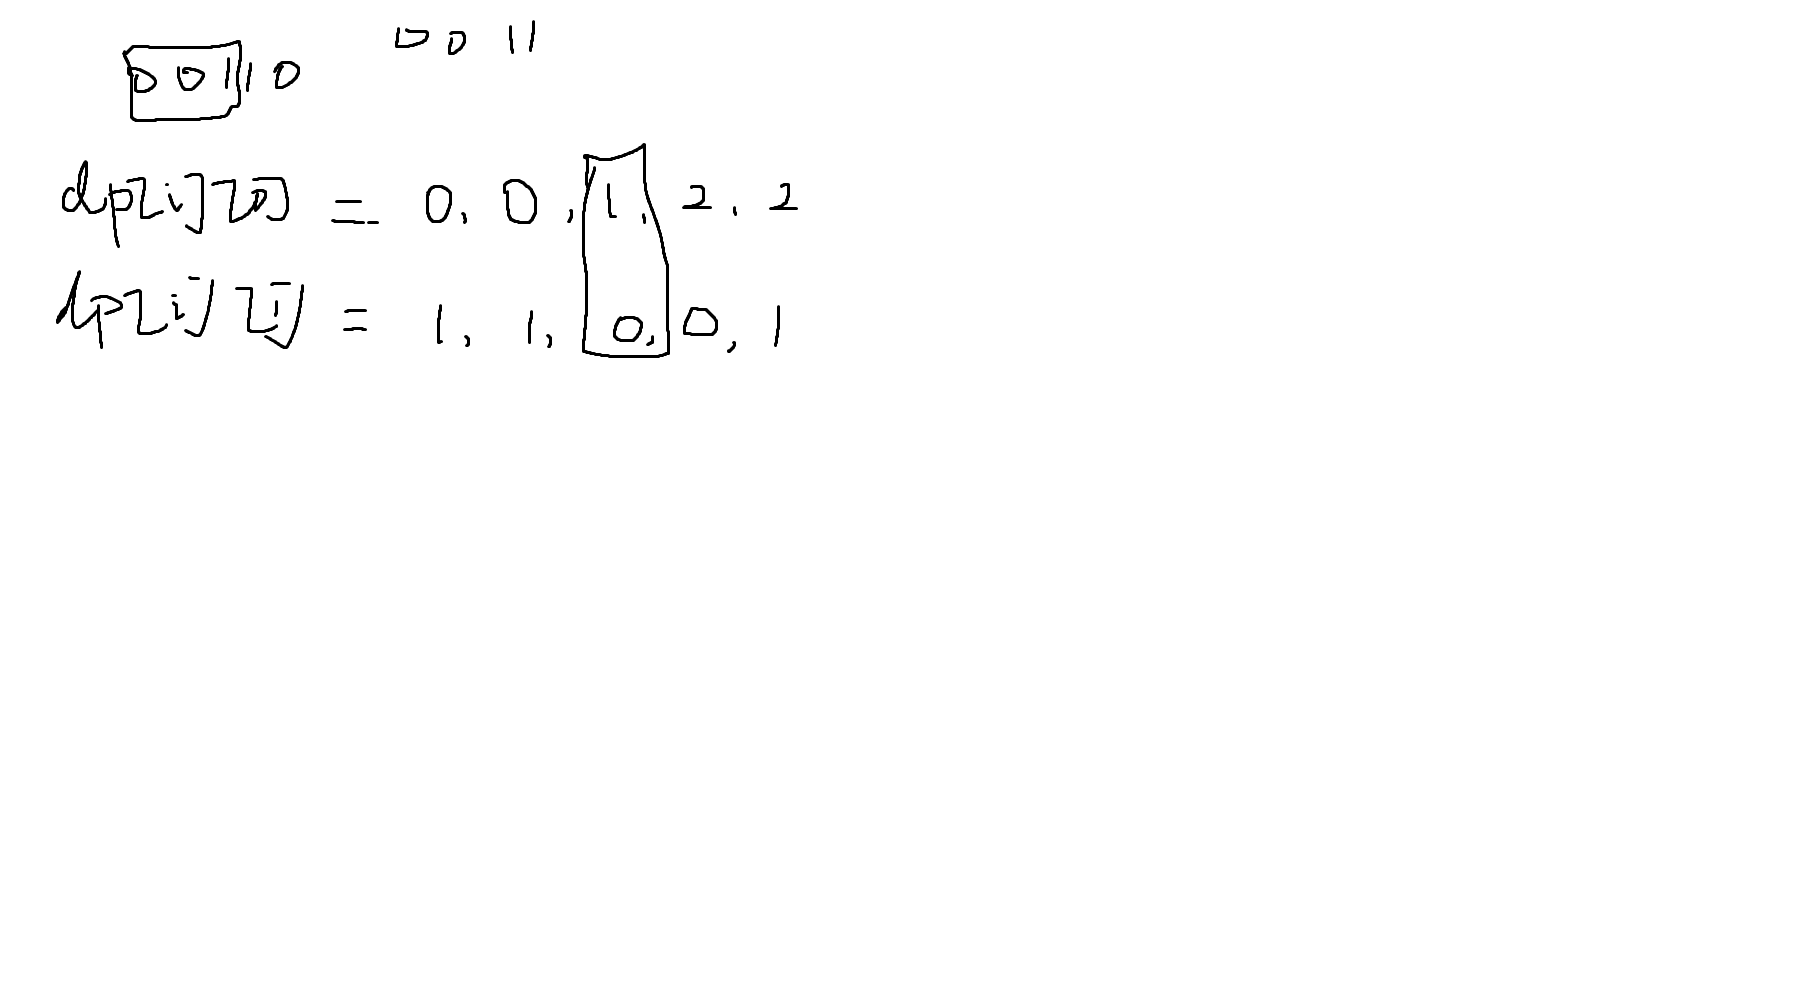 0 0 1 1
0 0 1 1 0
dp[i][0] = 0, 0, 1, 2, 2
dp[i][1] = 1, 1, 0, 0, 1